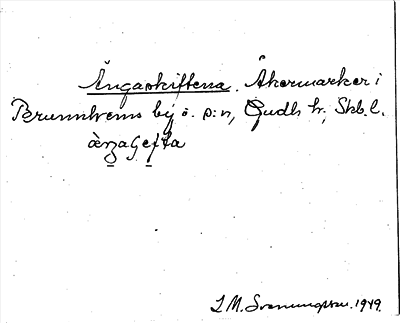 Ängaskiftena. Åkermarker i
Brunnhems by o. s:n, Gudh. hr, Skb. l.
J. M. Svenungsson. 1949.